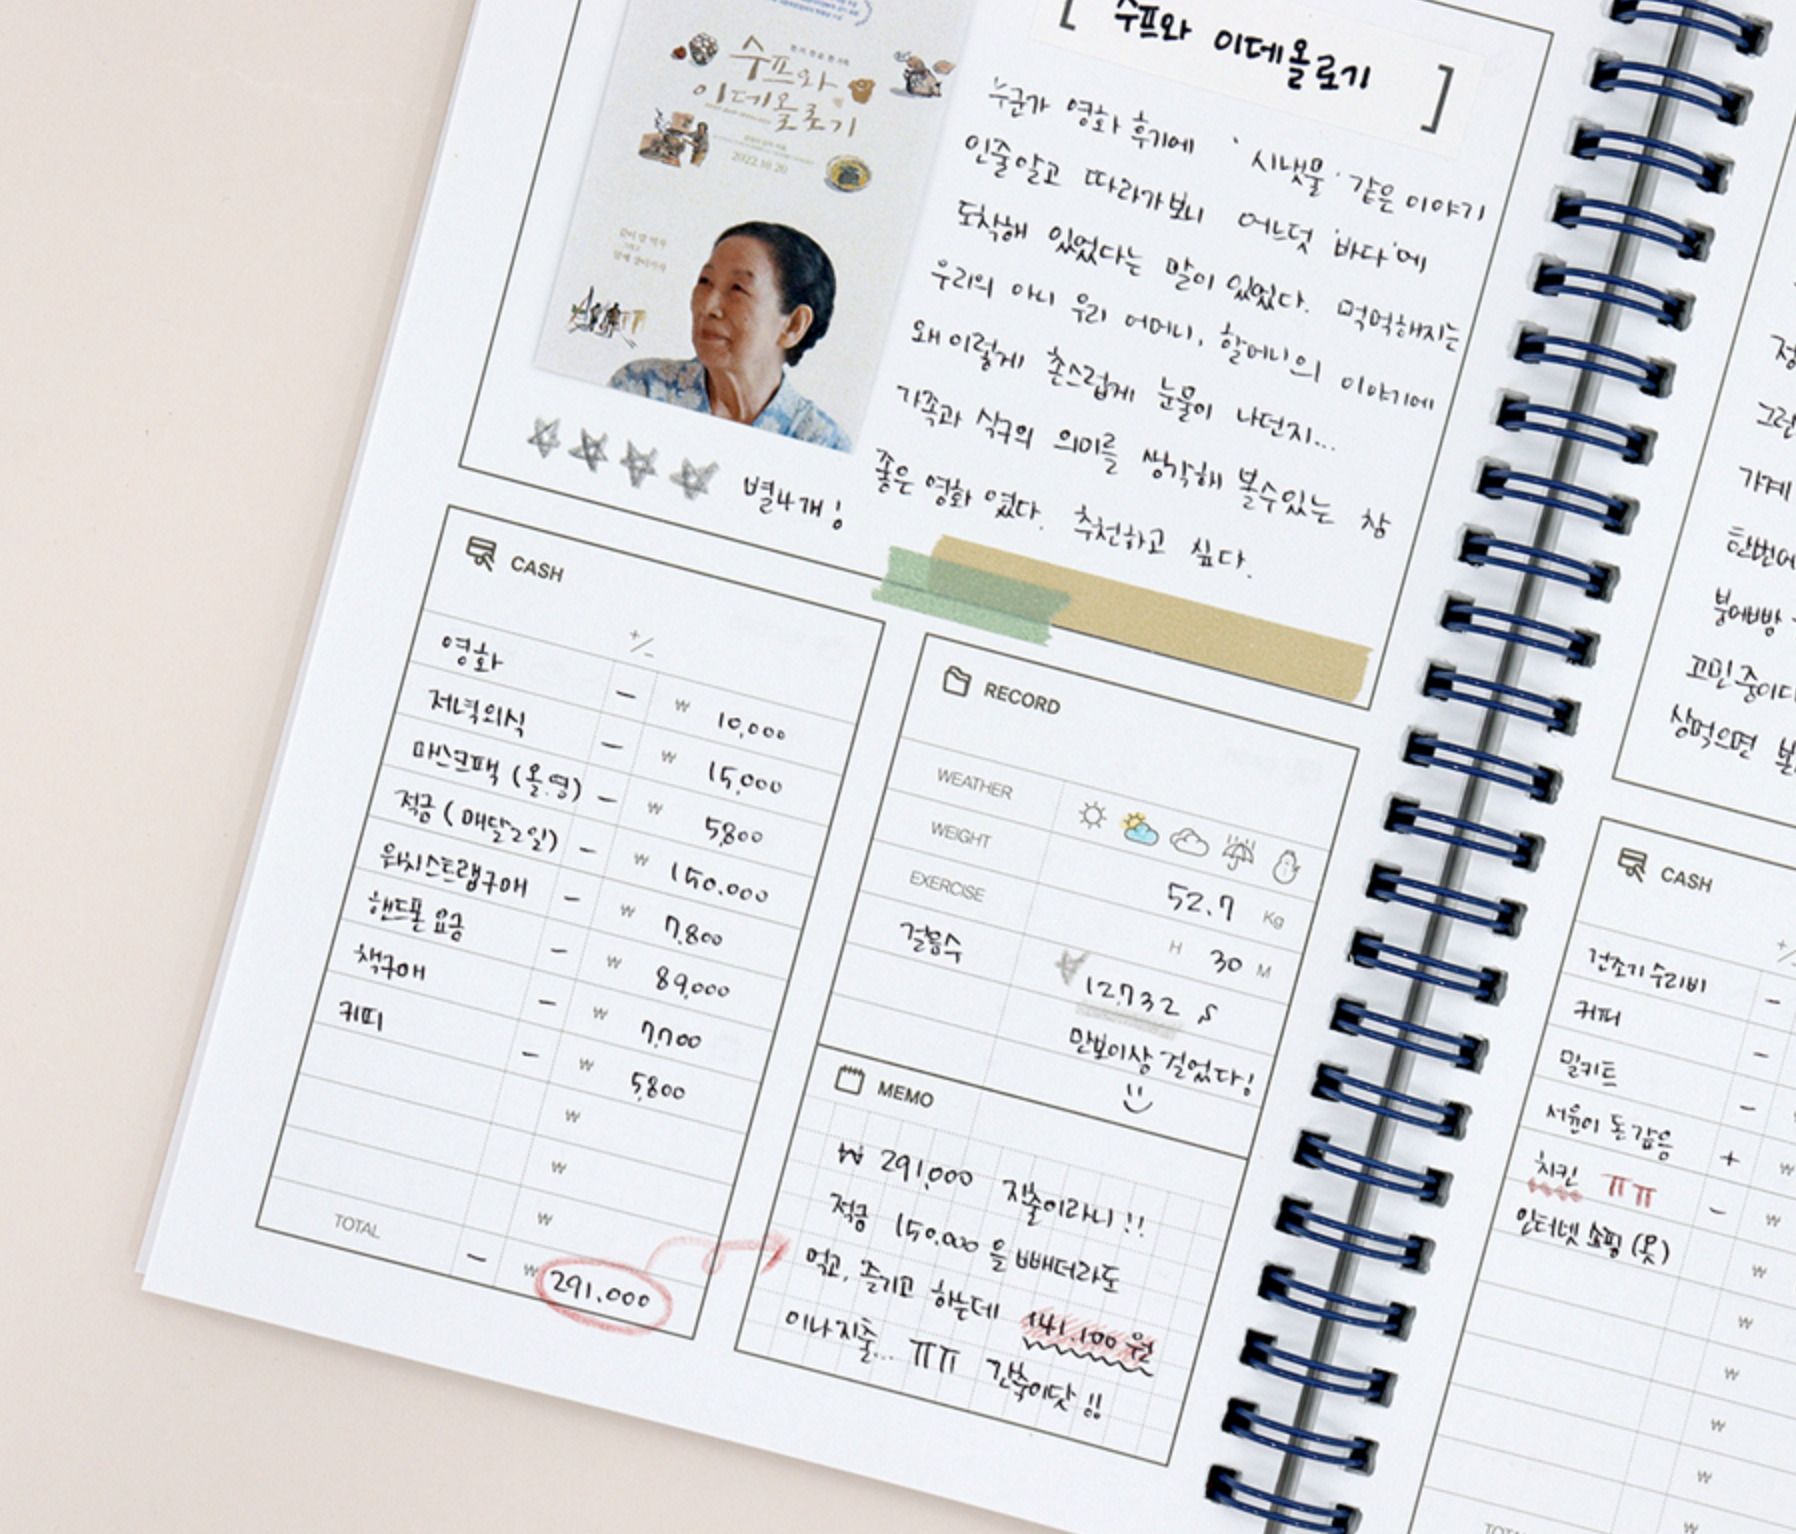 수프와
이데올로기
2022.10.20
[ 수프와 이데올로기 ]
누군가 영화 후기에 '시냇물' 같은 이야기
인줄알고 따라가보니 어느덧 '바다'에
도착해 있었다는 말이 있었다. 먹먹해지는
우리의 아니 우리 어머니, 할머니의 이야기에
왜 이렇게 촌스럽게 눈물이 나던지...
가족과 식구의 의미를 생각해 볼수있는 참
좋은 영화 였다. 추천하고 싶다.
별4개!
CASH
+/-
영화 - ₩ 10,000
저녁외식 - ₩ 15,000
마스크팩 (올.영) - ₩ 5,800
적금 (매달2일) - ₩ 150.000
워치스트랩구매 - ₩ 7,800
핸드폰 요금 - ₩ 89,000
책구매 - ₩ 7,700
커피 - ₩ 5,800
₩
₩
₩
TOTAL - ₩ 291.000
RECORD
WEATHER
WEIGHT 52.7 Kg
EXERCISE H 30 M
걸음수 12.732 S
만보이상 걸었다!
MEMO
₩ 291,000 지출이라니!!
적금 150.000 을 빼더라도
먹고, 즐기고 하는데 141.100 원
이나지출... ㅠㅠ 긴축이닷!!
정
그런
가계
한번에
붕어빵
고민중이다
상먹으면
CASH
+/-
건조기 수리비 -
커피 -
밀키트 -
서윤이 돈 갚음 + ₩
치킨 ㅠㅠ - ₩
인터넷 쇼핑 (옷) ₩
₩
₩
₩
₩
₩
TOTAL ₩